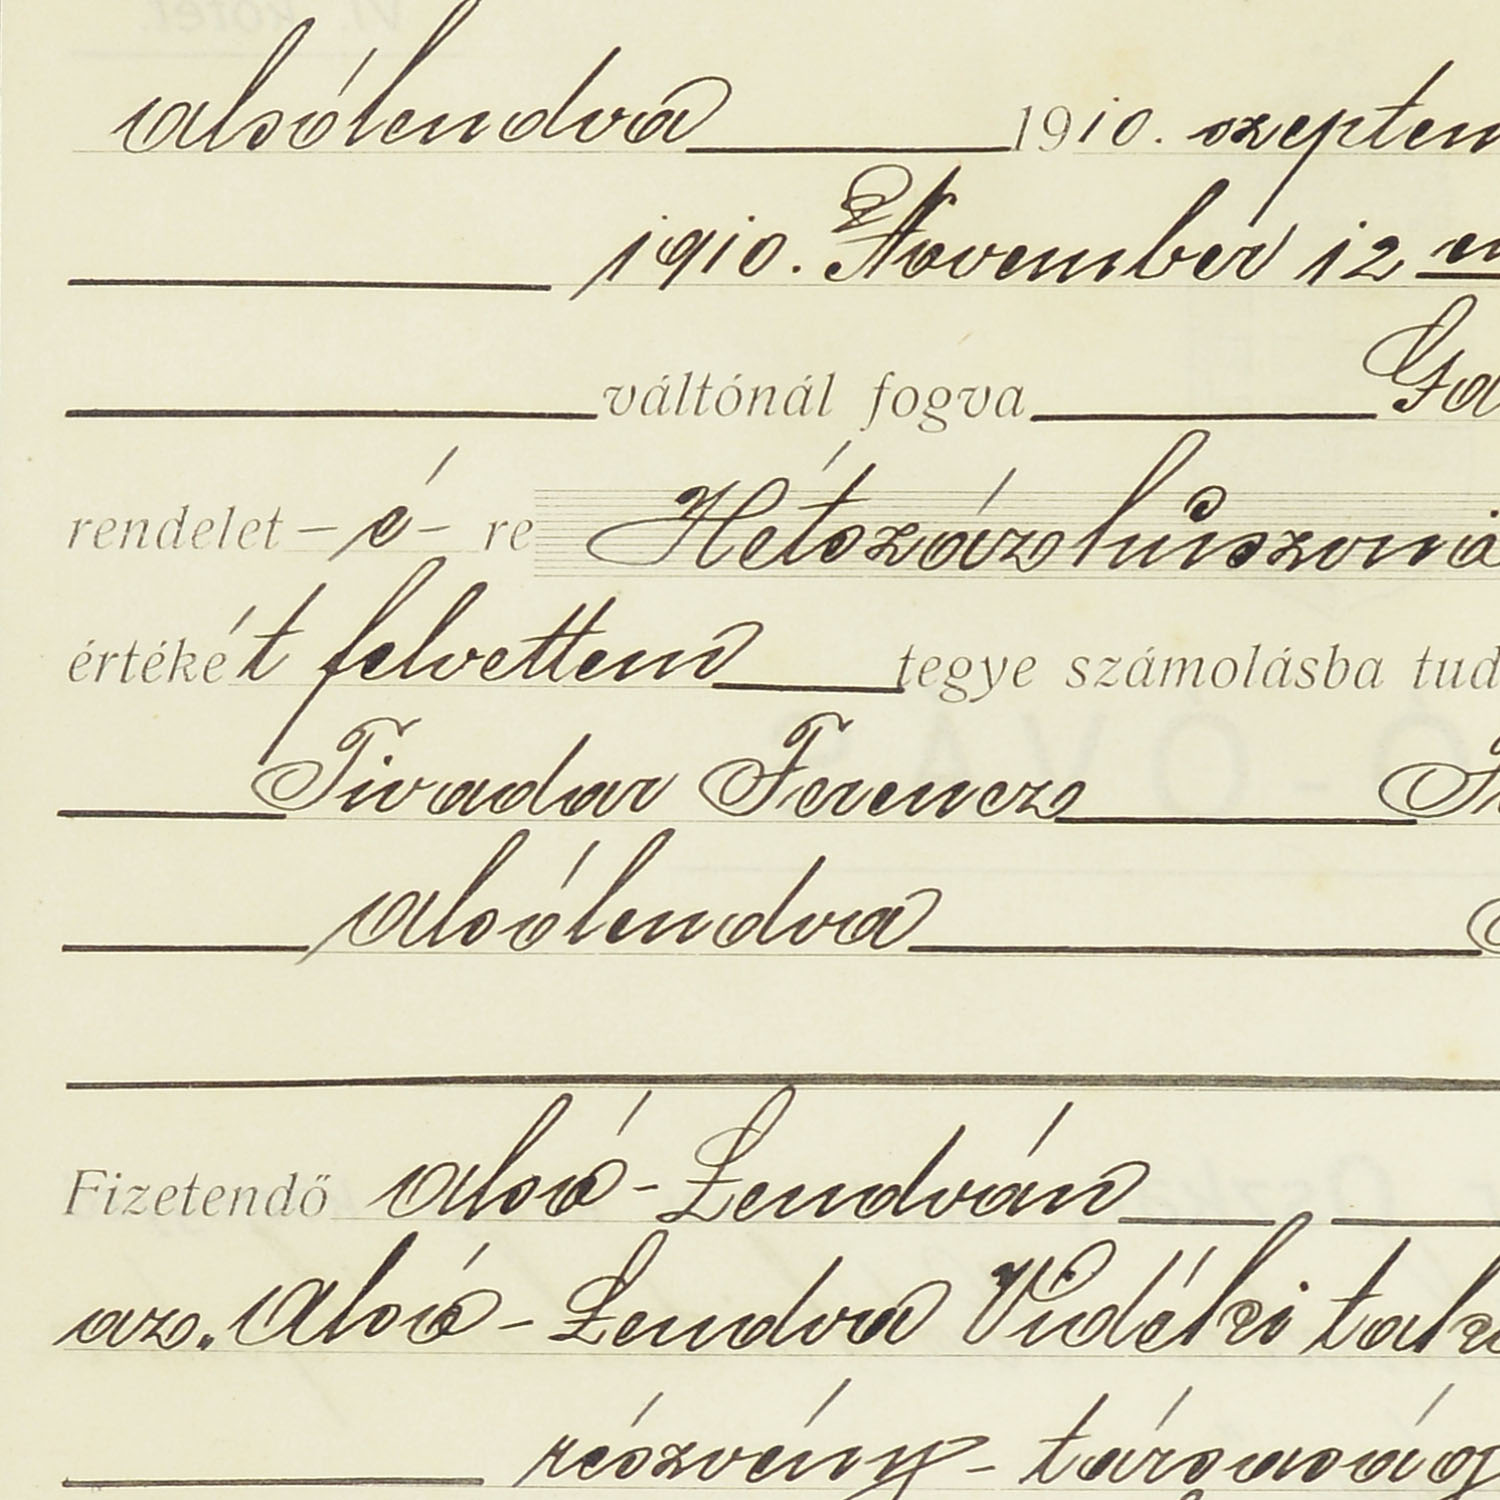 Alsólendva 1910. szeptem
1910. November 12 én
váltónál fogva Ga
rendelet - ő - re Hétszázhúszonö
értékét felvettem tegye számolásba tud
Tivadar Ferencz
Alsólendva
Fizetendő Alsó-Lendván
az. Alsó-Lendva Vidéki tak
részvény - társaság